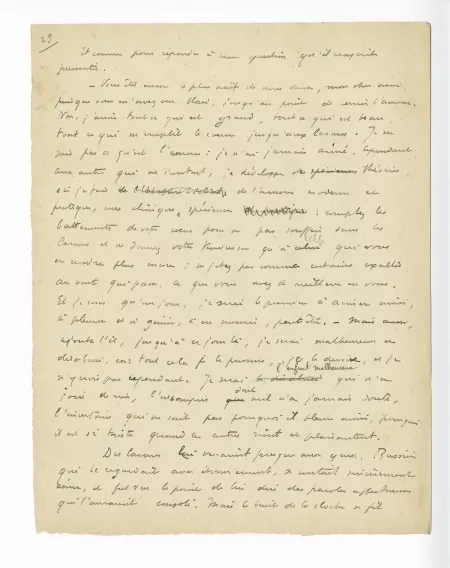 29
Et comme pour répondre à une question qu'il
pressentit.
— Vous êtes encore le plus naïf de nous deux, mon cher ami,
puisque vous m'avez cru blasé, jusqu'au point de l'amour.
Non, j'aime tout ce qui est grand, tout ce qui est beau,
tout ce qui remplit le cœur jusqu'aux larmes. Je ne
sais pas ce qu'est l'amour : je n'ai jamais aimé. Cependant,
aux autres qui je développe des théories,
où je fais de l'amour moderne et
pratique, une clinique spéciale : comptez les
battements de votre cœur pour ne pas souffrir dans les
larmes et ne donnez votre tendresse qu'à celle qui vous
en rendra plus encore ; ne jetez pas comme certains exaltés,
au vent qui passe, ce que vous avez de meilleur en vous.
Et je sens qu'un jour, je serai le premier à aimer ainsi,
à pleurer et à gémir, à en mourir, peut-être. — Mais aussi,
ajouta-t-il, jusqu'à ce jour-là, je serai malheureux et
car tout cela je le pressens, je le devine, et je
cependant. Je serai l'enfant malheureux qui n'a
joui de rien, l'incompris dont nul n'a jamais douté,
l'incertain qui ne sait pas pourquoi il pleure ainsi, pourquoi
il est si triste quand les autres rient et plaisantent.
Des larmes lui venaient presque aux yeux.
qui le regardait avec étonnement, se sentait sincèrement
ému, et fut sur le point de lui dire des paroles affectueuses
qui l'auraient consolé. Mais le bruit de la cloche se fit